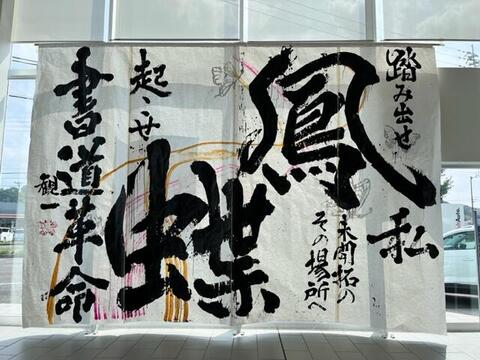 踏み出せ
私
鳳
未開拓の
その場所へ
蝶
起こせ
書道革命
観一